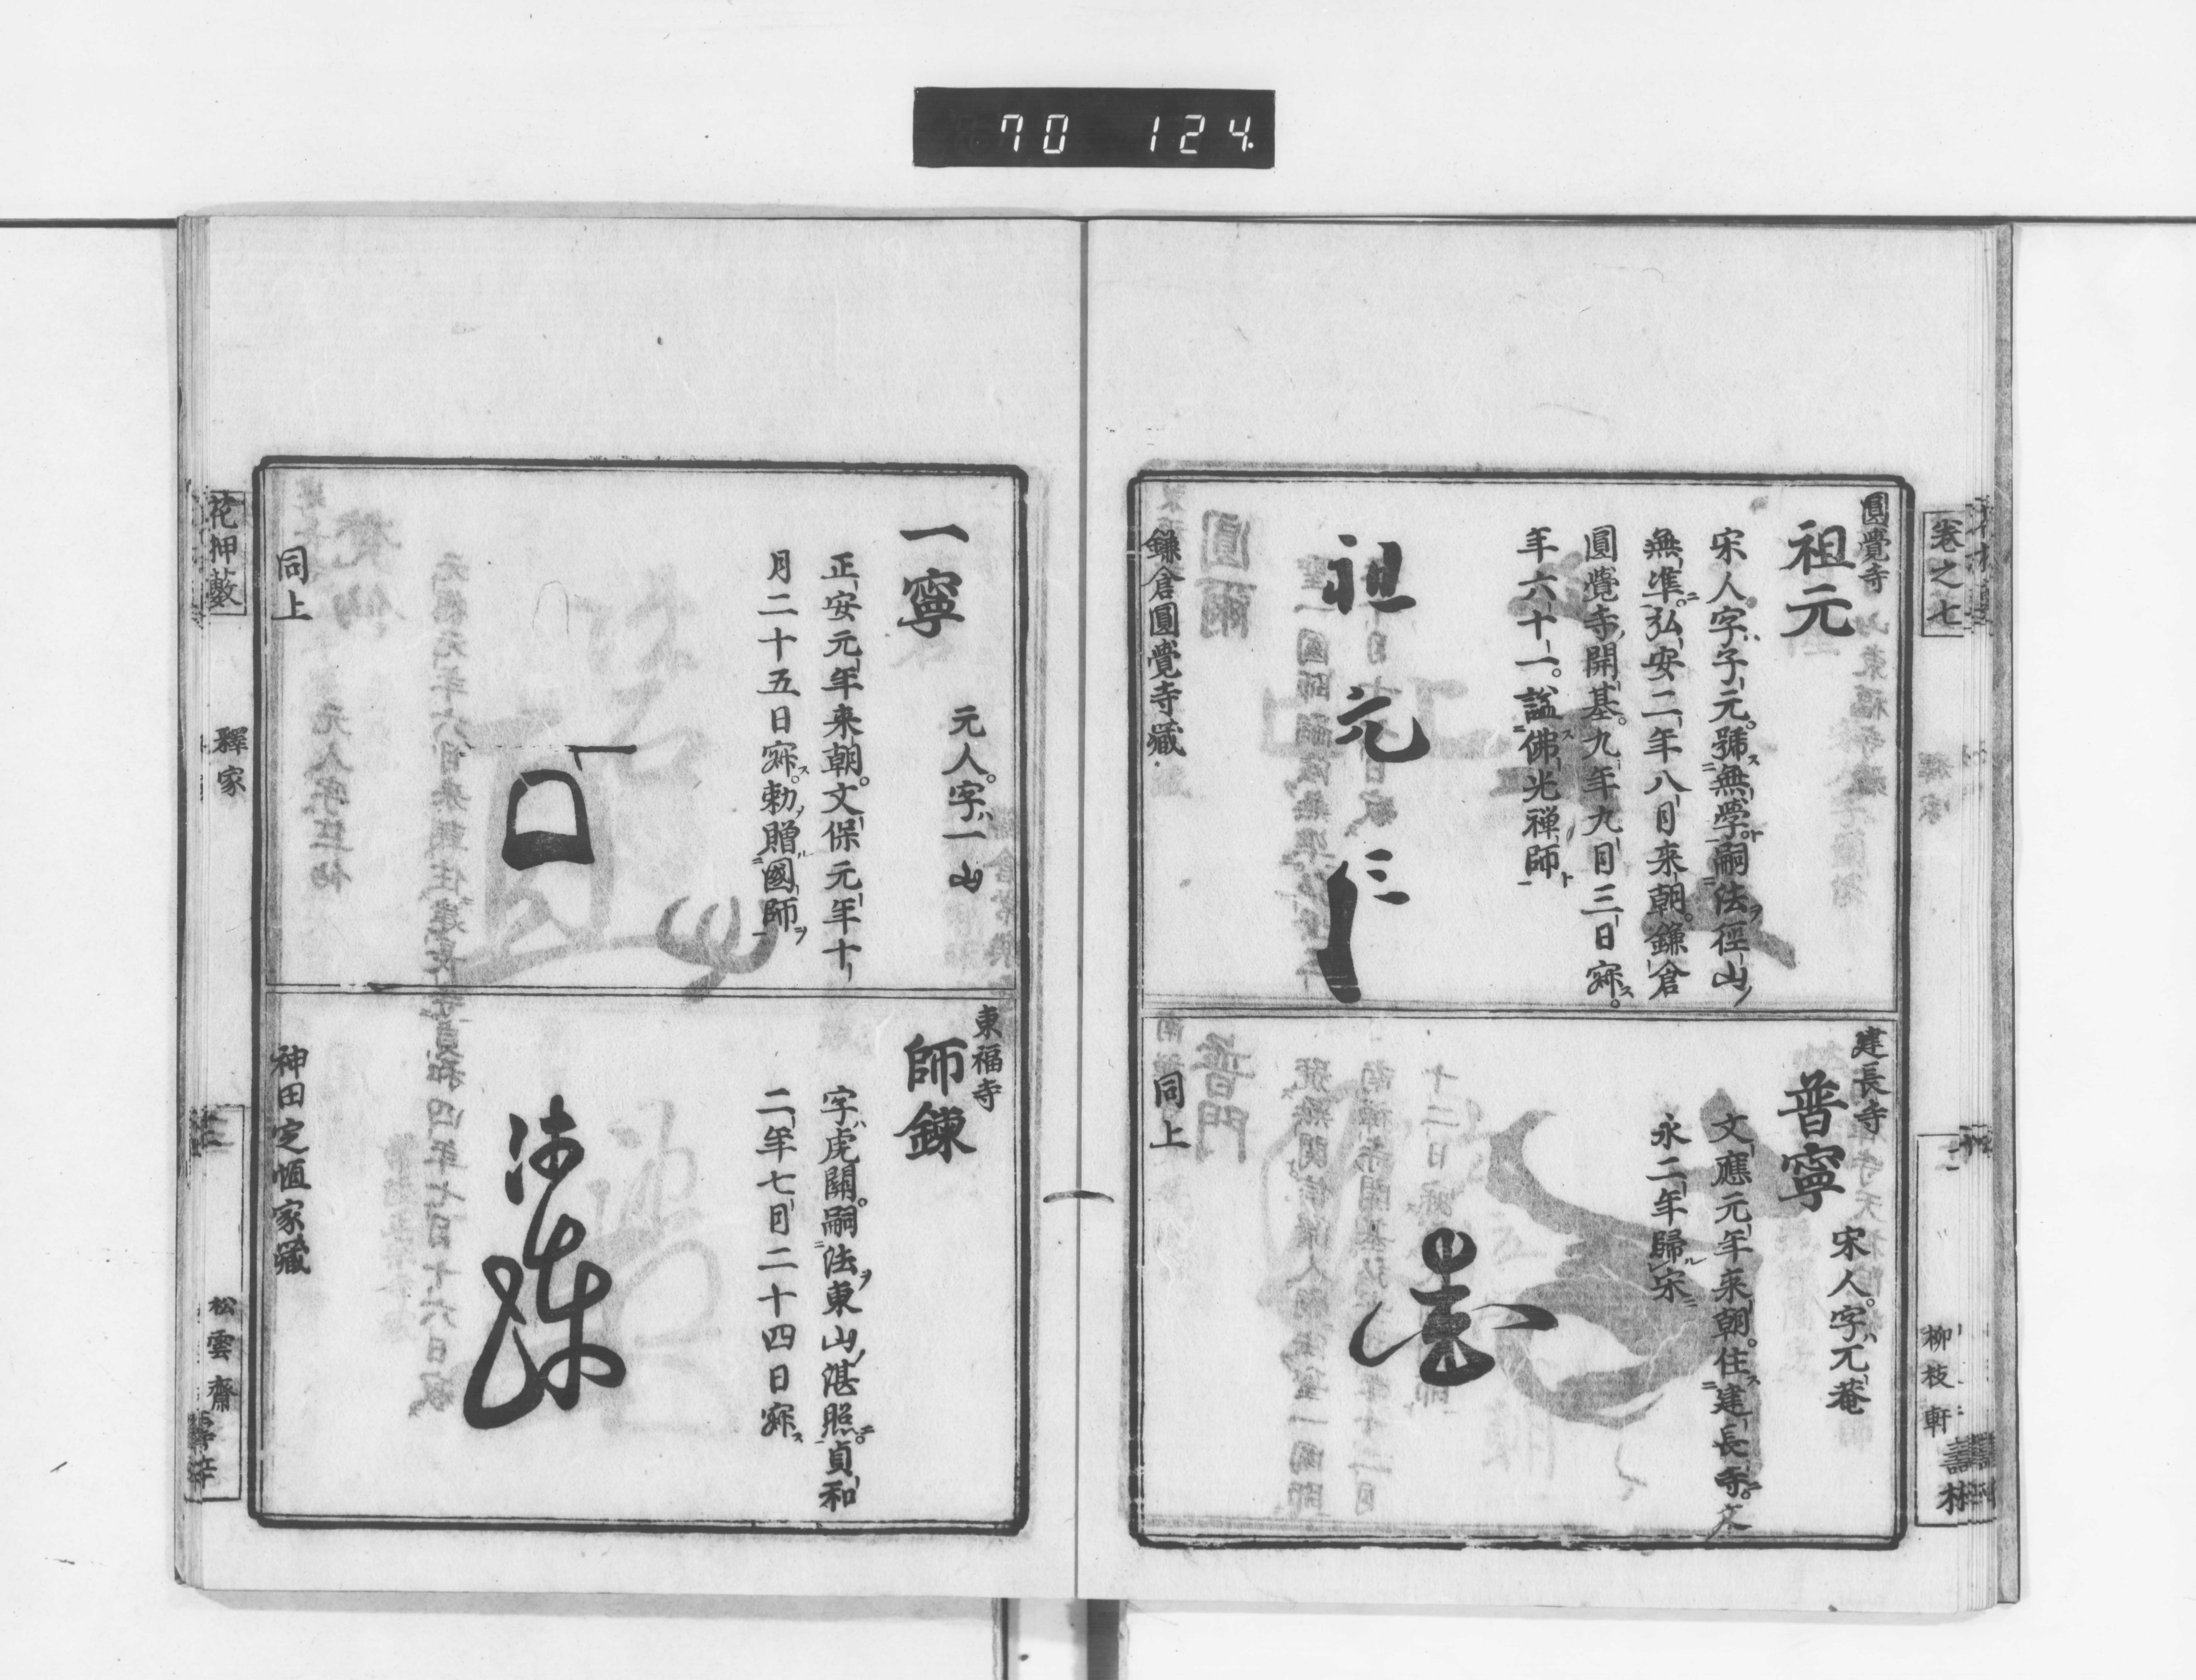 70 124
卷之七
柳枝軒
圓覺寺
祖元
宋人。字ハ子元。號ス無學ト。嗣法ヲ徑山ノ
無準ニ。弘安二年八月来朝。鎌倉
圓覺寺開基。九年九月三日寂ス。
年六十一。謚ス佛光禅師ト
祖元
鎌倉圓覺寺藏
建長寺
普寧
宋人。字ハ兀菴
文應元年来朝。住ス建長寺ニ。文
永二年歸ル宋ニ
同上
一寧
元人。字ハ一山
正安元年来朝。文保元年十
月二十五日寂ス。勅贈ル國師ヲ
同上
東福寺
師鍊
字ハ虎關。嗣法ヲ東山ノ湛照ニ。貞和
二年七月二十四日寂ス
師鍊
神田定恒家藏
花押藪
釋家
松雲齋